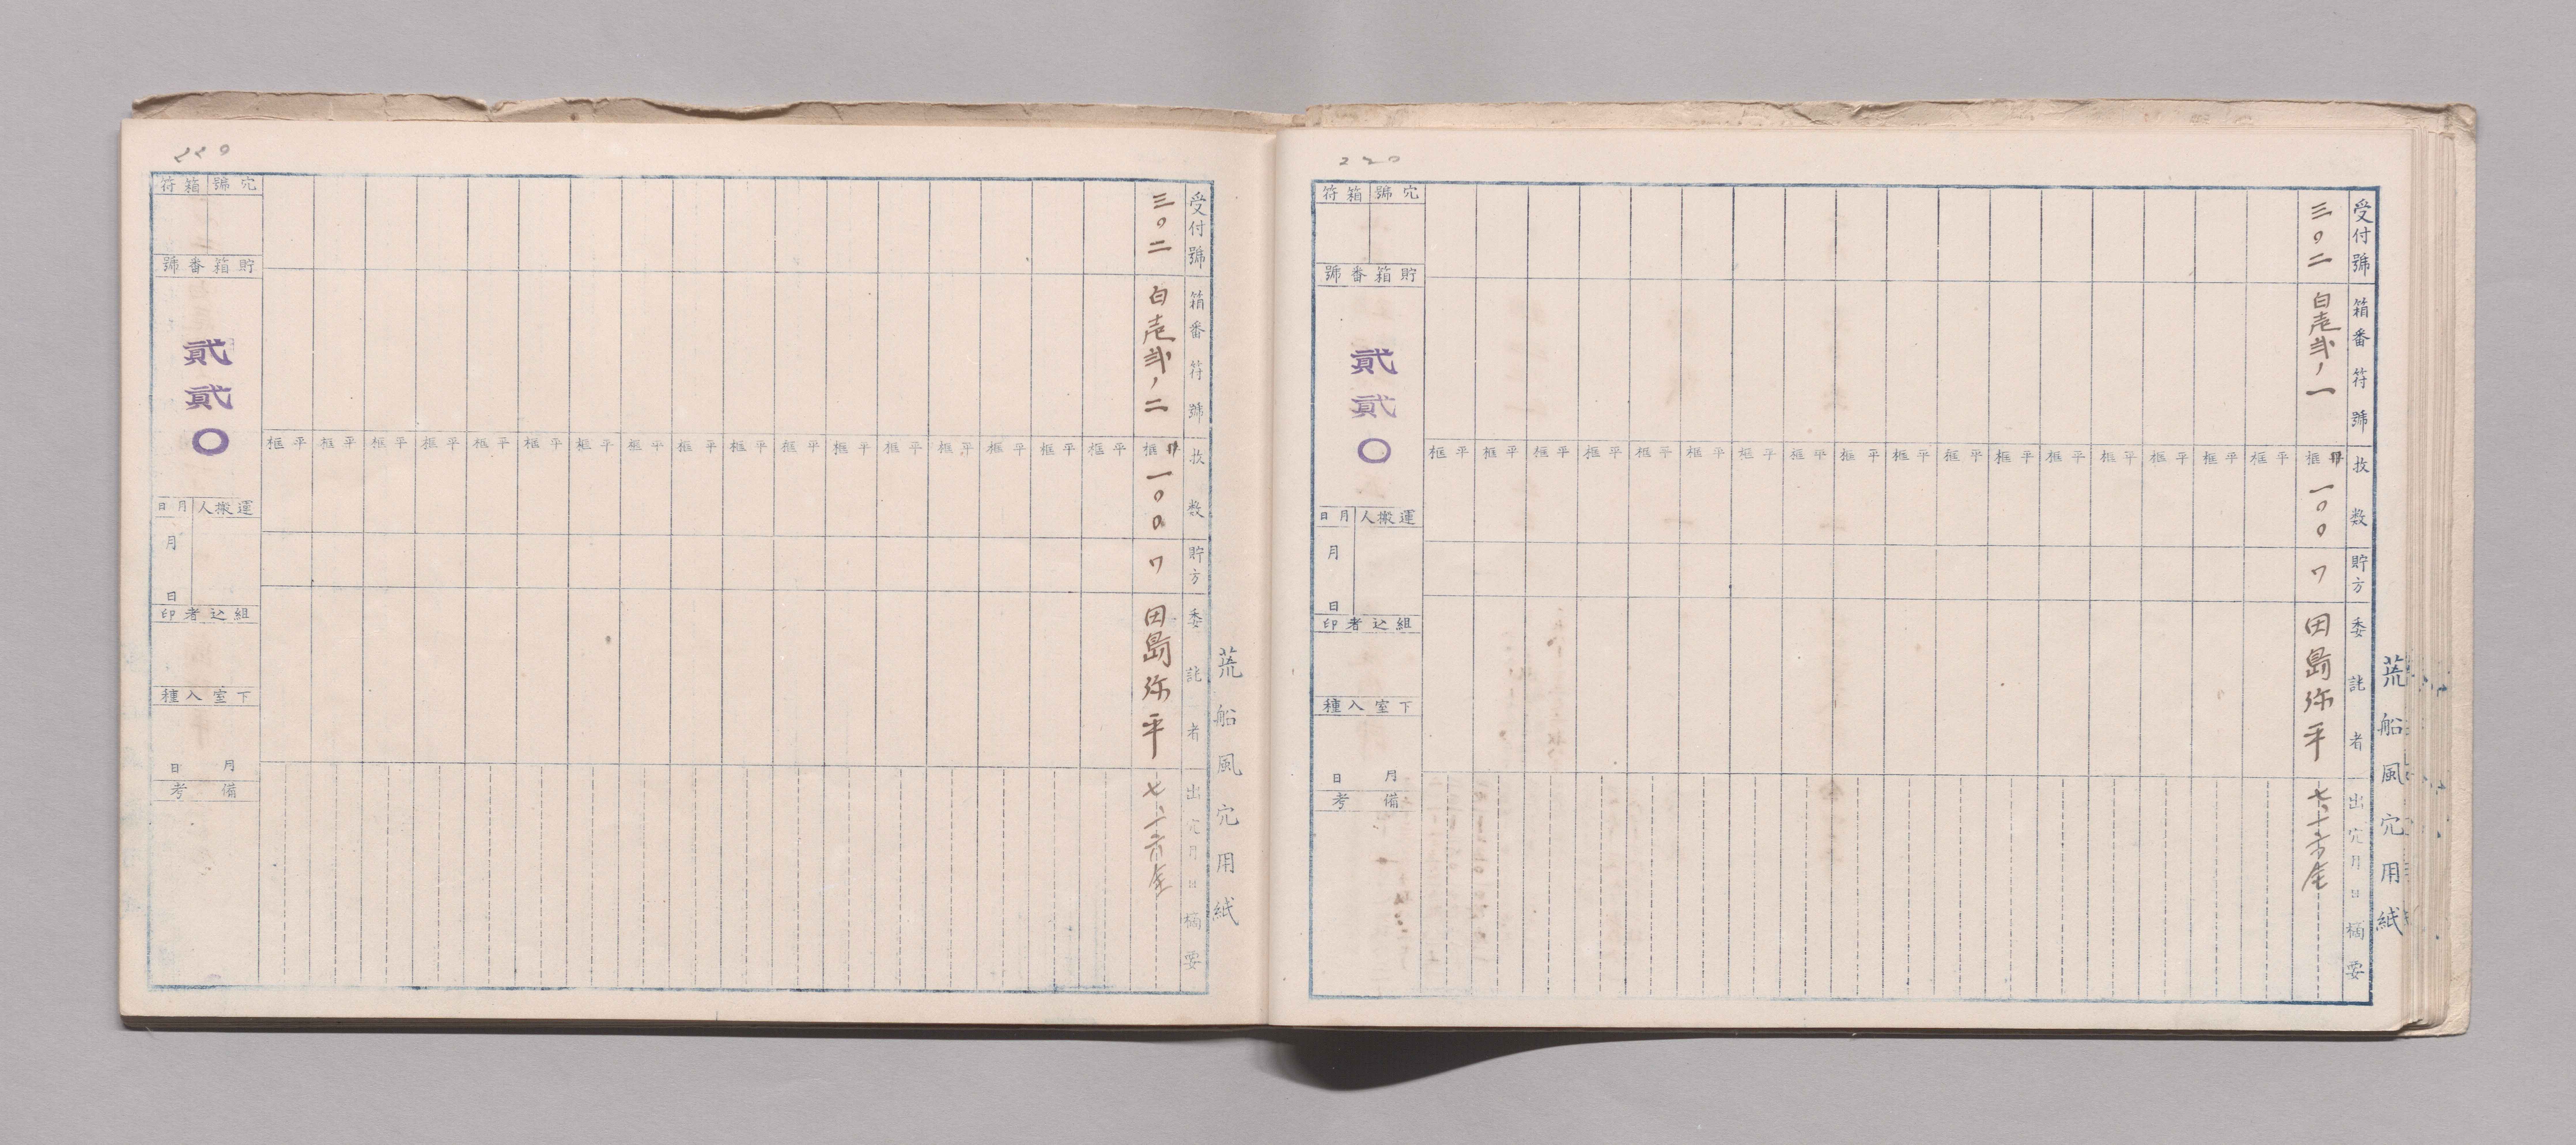 荒船風穴用紙
受付號 箱番符號 枚数 貯方 委託者 出穴月日摘要
三〇二 白壱弐ノ一 框 一〇〇 ワ 田島弥平
框平 框平 框平 框平 框平 框平 框平 框平 框平 框平 框平 框平 框平 框平 框平 框平 框平
220
符箱 號穴
號番箱貯
貳貳〇
日月 人搬運
月 日
印者込組
種入室下
日 月
考備
荒船風穴用紙
受付號 箱番符號 枚数 貯方 委託者 出穴月日摘要
三〇二 白壱弐ノ二 框 一〇〇 ワ 田島弥平
框平 框平 框平 框平 框平 框平 框平 框平 框平 框平 框平 框平 框平 框平 框平 框平 框平
220
符箱 號穴
號番箱貯
貳貳〇
日月 人搬運
月 日
印者込組
種入室下
日 月
考備